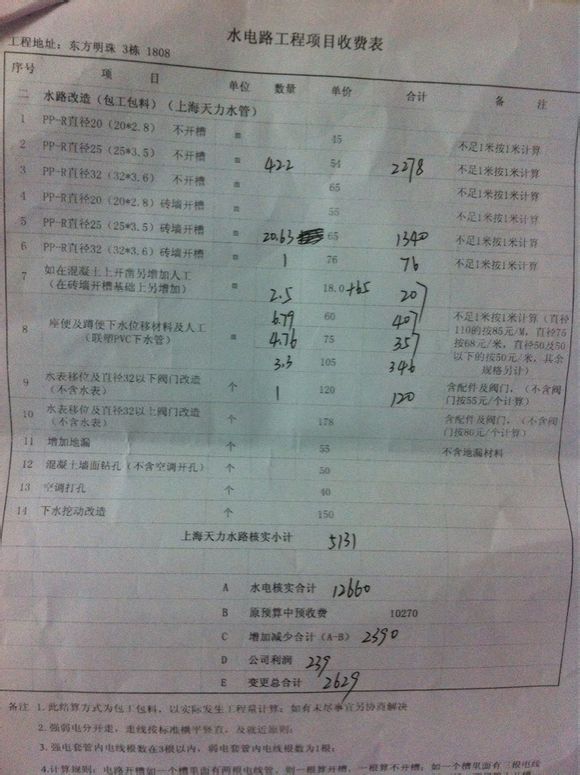 水电路工程项目收费表
工程地址：东方明珠 3栋 1808
序号 项 目 单位 数量 单价 合计 备 注
二 水路改造（包工包料）（上海天力水管）
1 PP-R直径20（20*2.8） 不开槽 m 45 不足1米按1米计算
2 PP-R直径25（25*3.5） 不开槽 m 42.2 54 2278 不足1米按1米计算
3 PP-R直径32（32*3.6） 不开槽 m 65 不足1米按1米计算
4 PP-R直径20（20*2.8）砖墙开槽 m 55 不足1米按1米计算
5 PP-R直径25（25*3.5）砖墙开槽 m 20.63 65 1340 不足1米按1米计算
6 PP-R直径32（32*3.6）砖墙开槽 m 1 76 76 不足1米按1米计算
7 如在混凝土上开凿另增加人工
（在砖墙开槽基础上另增加） m 2.5 18.0+65 207
8 座便及蹲便下水位移材料及人工
（联塑PVC下水管） m
6.79 60 407 不足1米按1米计算（直径
4.76 75 357 110的按85元/M，直径75
按68元/米，直径50及50
3.3 105 346 以下的按50元/米，其余
规格另计）
9 水表移位及直径32以下阀门改造
（不含水表） 个 1 120 120 含配件及阀门，（不含阀
门按55元/个计算）
10 水表移位及直径32以上阀门改造
（不含水表） 个 178 含配件及阀门，（不含阀
门按80元/个计算）
11 增加地漏 个 55 不含地漏材料
12 混凝土墙面钻孔（不含空调开孔） 个 50
13 空调打孔 个 40
14 下水挖动改造 个 150
上海天力水路核实小计 5131
A 水电核实合计 12660
B 原预算中预收费 10270
C 增加减少合计（A-B） 2390
D 公司利润 239
E 变更总合计 2629
备注 1.此结算方式为包工包料，以实际发生工程量计算；如有未尽事宜另协商解决
2.强弱电分开走，走线按标准横平竖直，及就近原则；
3.强电套管内电线根数在3根以内，弱电套管内电线根数为1根；
4.计算规则：电路开槽如一个槽里面有两根电线管，则一根算开槽，一根算不开槽；如一个槽里面有三根电线